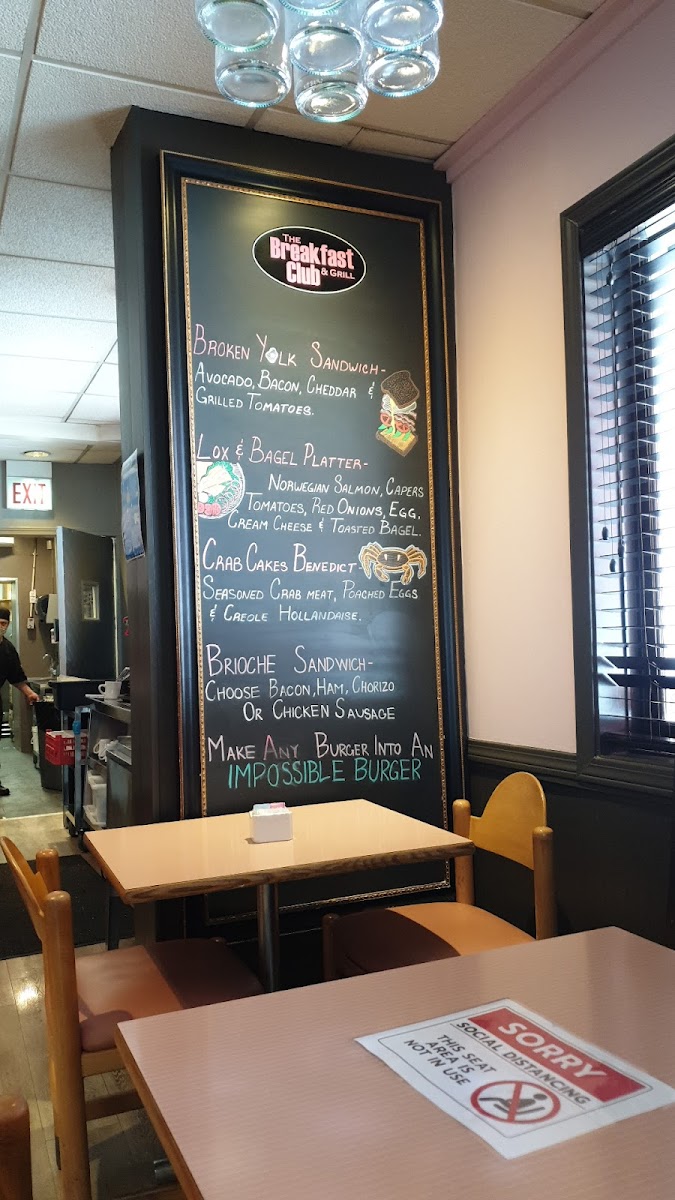 The
Breakfast
Club & Grill
Broken Yolk Sandwich-
Avocado, Bacon, Cheddar &
Grilled Tomatoes.
Lox & Bagel Platter-
Norwegian Salmon, Capers
Tomatoes, Red Onions, Egg,
Cream Cheese & Toasted Bagel.
Crab Cakes Benedict-
Seasoned Crab meat, Poached Eggs
& Creole Hollandaise.
Brioche Sandwich-
Choose Bacon, Ham, Chorizo
Or Chicken Sausage
Make Any Burger Into An
IMPOSSIBLE BURGER
EXIT
SORRY
SOCIAL DISTANCING
THIS SEAT
AREA IS
NOT IN USE